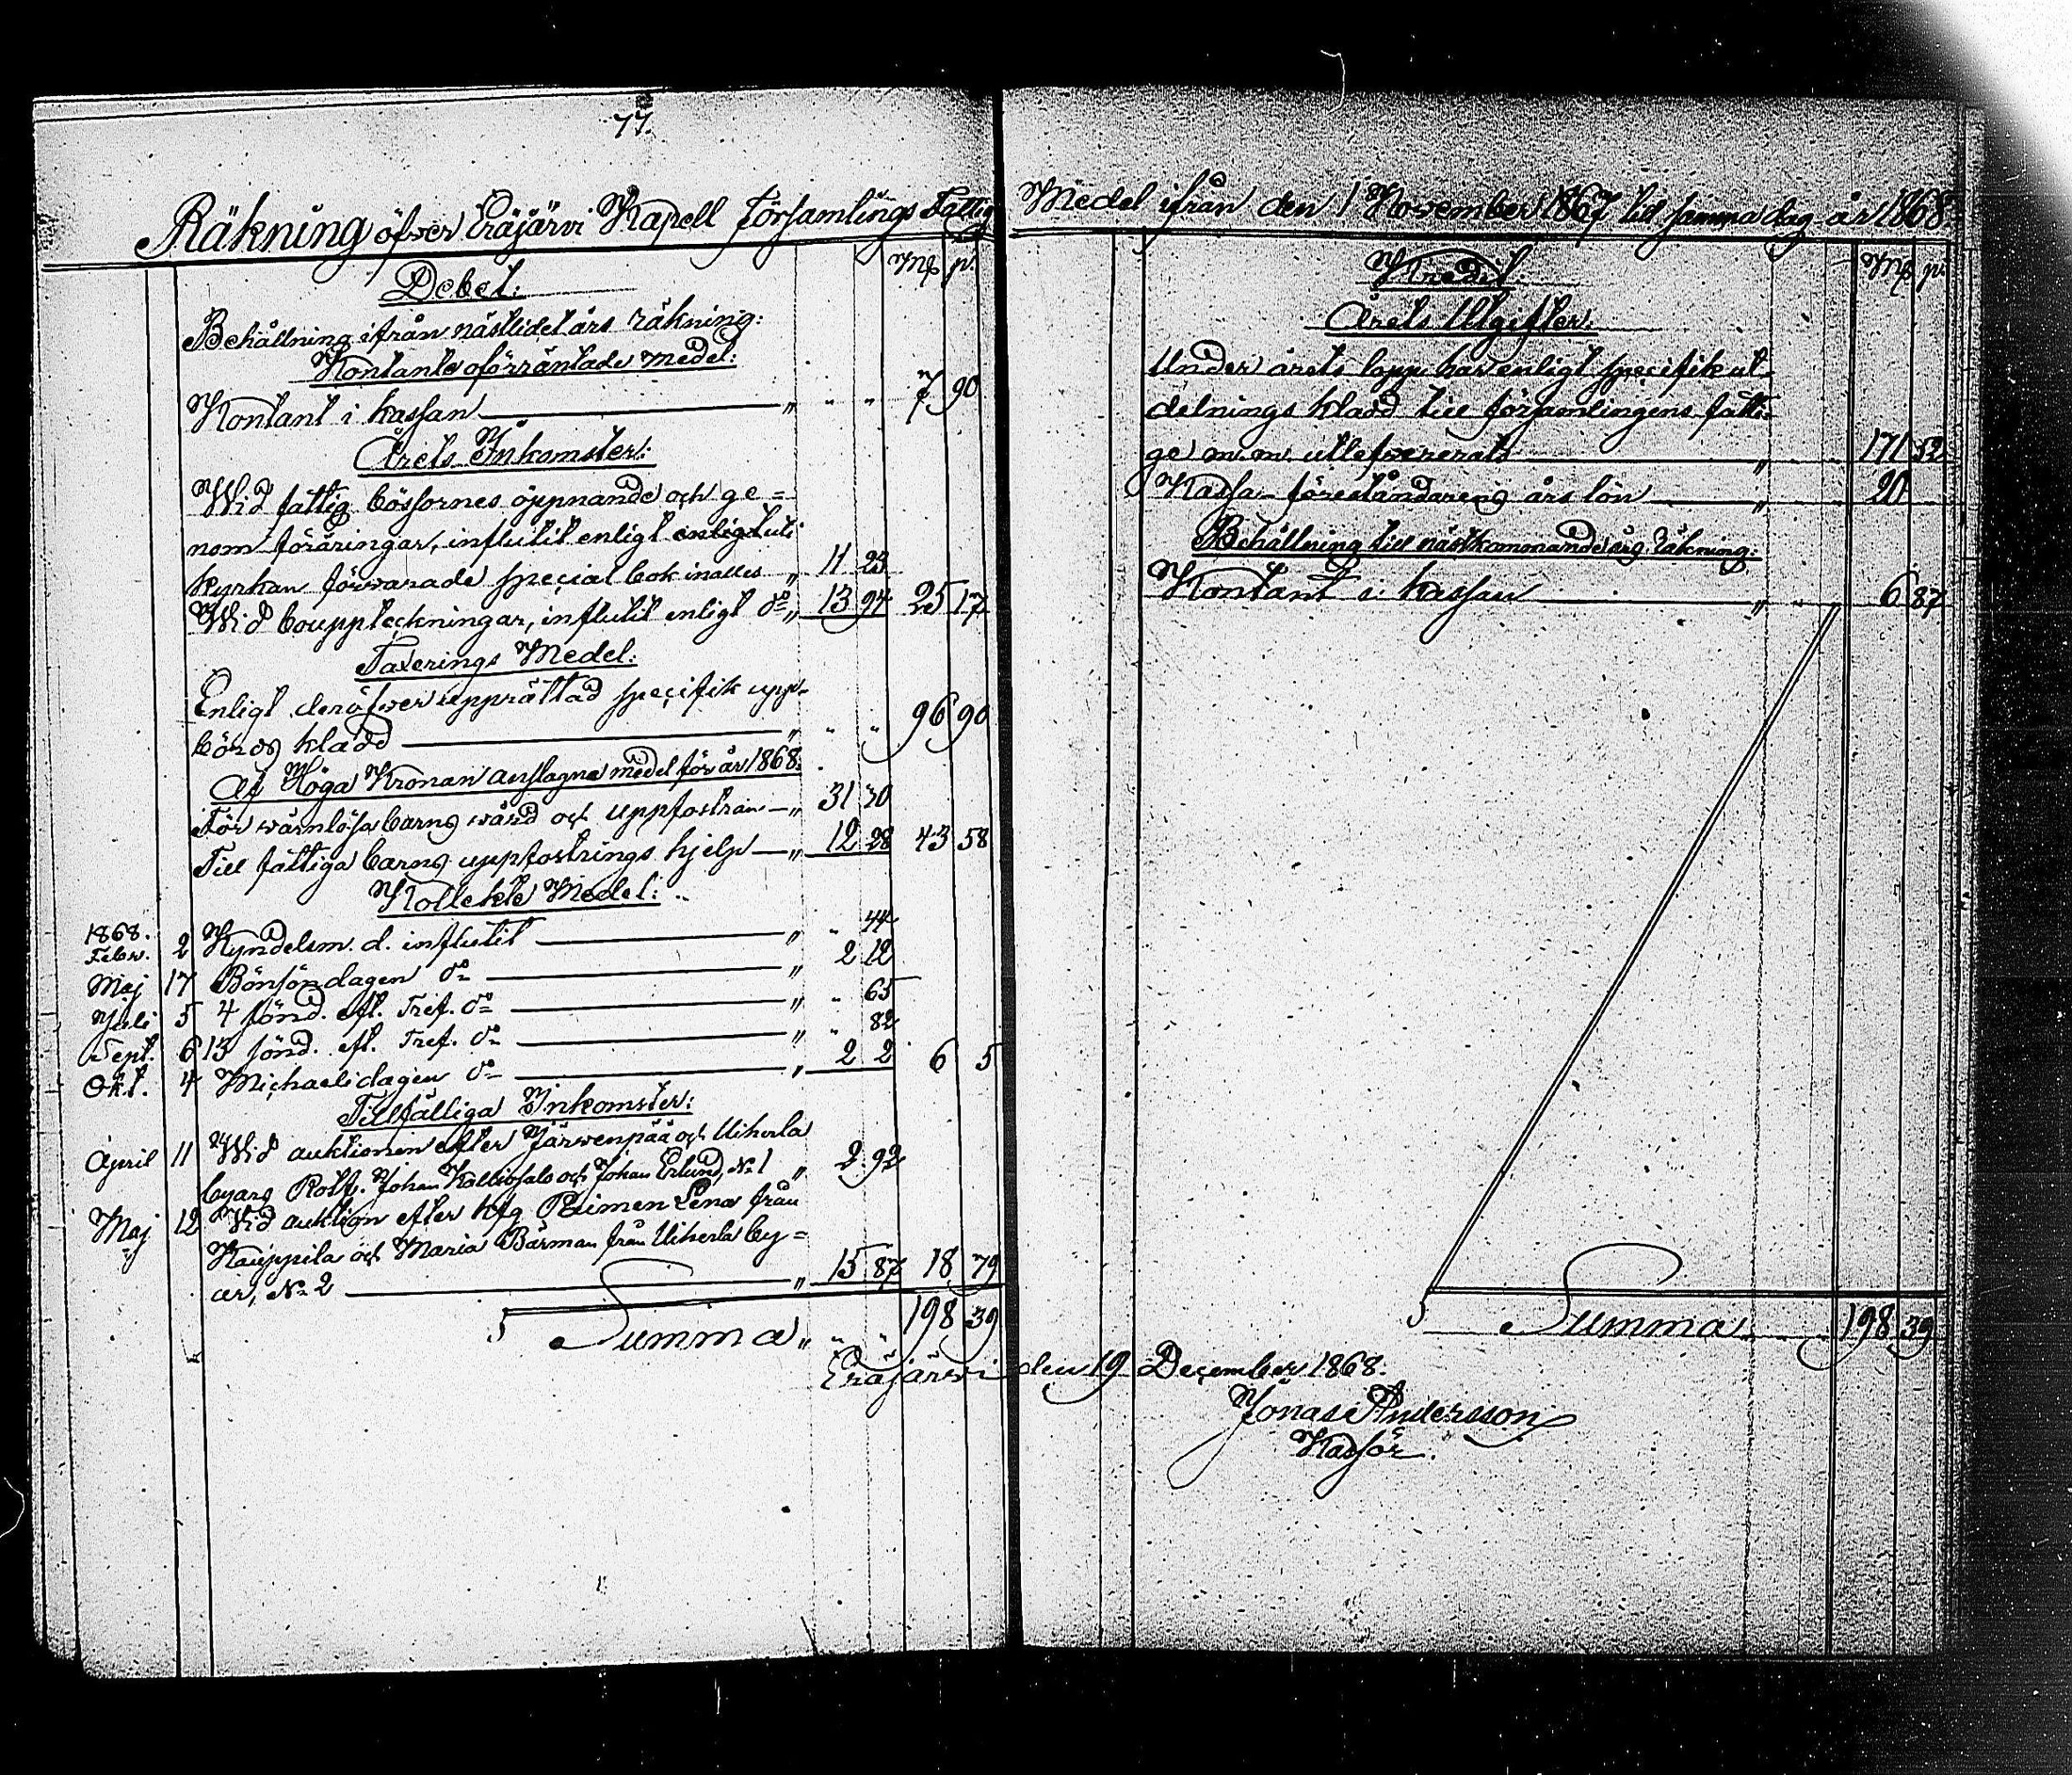 77.
Räkning öfwer Eräjärvi Kapell Församlings Fattig
Mp p.
Debet:
Behållning ifrån nästlidet års räkning:
Kontante oförräntade medel:
Kontant i kassan — " " " 7 90
Årets Inkomster:
Wid fattig bössornes öppnande och ge=
nom föräringar, influtit enligt enligt uti
kyrkan förwarade special bok inalles " 11 23
Wid bouppteckningar, influtit enligt do " 13 94 25 17
Taxerings Medel:
Enligt deröfwer upprättad specifik upp-
börds kladd — " " " 96 90
Af Höga Kronan anslagna medel för år 1868.
För wärnlösa barns wård och uppfostran — " 31 30
Till fattiga barns uppfostrings hjelp — " 12 28 43 58
Kollekte Medel:
1868.
Febr. 2 Kyndelsm. d. influtit — " " 44
Maj 17 Bönsöndagen do — " 2 12
Juli 5 4 sönd. eft. Tref. do — " " 65
Sept. 6 13 sönd. eft. Tref. do — " " 82
Okt. 4 Michaelidagen do — " 2 2 6 5
Tillfälliga Inkomster:
April 11 Wid auktionen efter Järwenpää och Uiherla
byars Rotf. Johan Kalliosalo och Johan Erlund, No 1 " 2 92
Maj 12 Vid auktion efter hfg Reimen Lena från
Kauppila och Maria Bärman från Uiherla by=
ar, No 2 — " 15 87 18 79
Summa " " " 198 39
Medel ifrån den 1 November 1867 till samma dag år 1868
Mp p.
Kredit:
Årets Utgifter:
Under årets lopp har enligt specifik ut-
delnings kladd till församlingens fatti-
ge m.m. utlefwererats — " 171 52
Kassa-föreståndarens års lön — " 20
Behållning till nästkommande års Räkning:
Kontant i kassan — " " 6 87
Summa 198 39
Eräjärwi den 19 December 1868.
Jonas Andersson
Kassör.